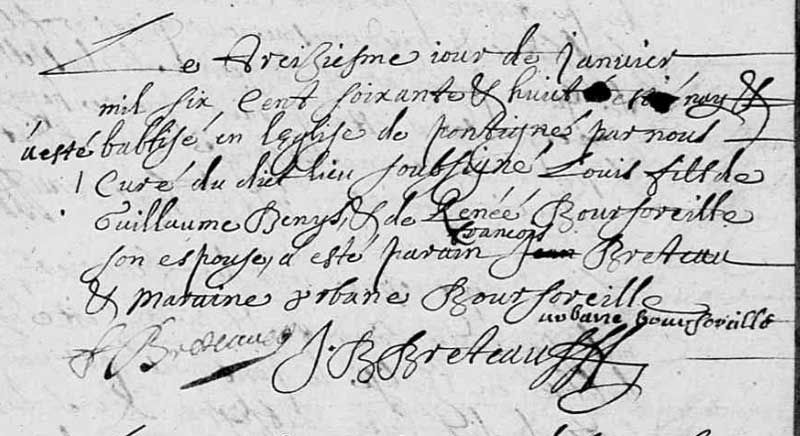 Le treiziesme jour de janvier
mil six cent soixante & huit est nay &
a esté babtisé en l'Eglise de pontigné par nous
Curé du dict lieu soubsigné, Louis fils de
Guillaume Benys, & de Renéé Boursoreille
son espouse, a esté parain Jean François Breteau
& maraine Urbane Boursoreille
urbane boursoreille
F Breteau J. B Breteau